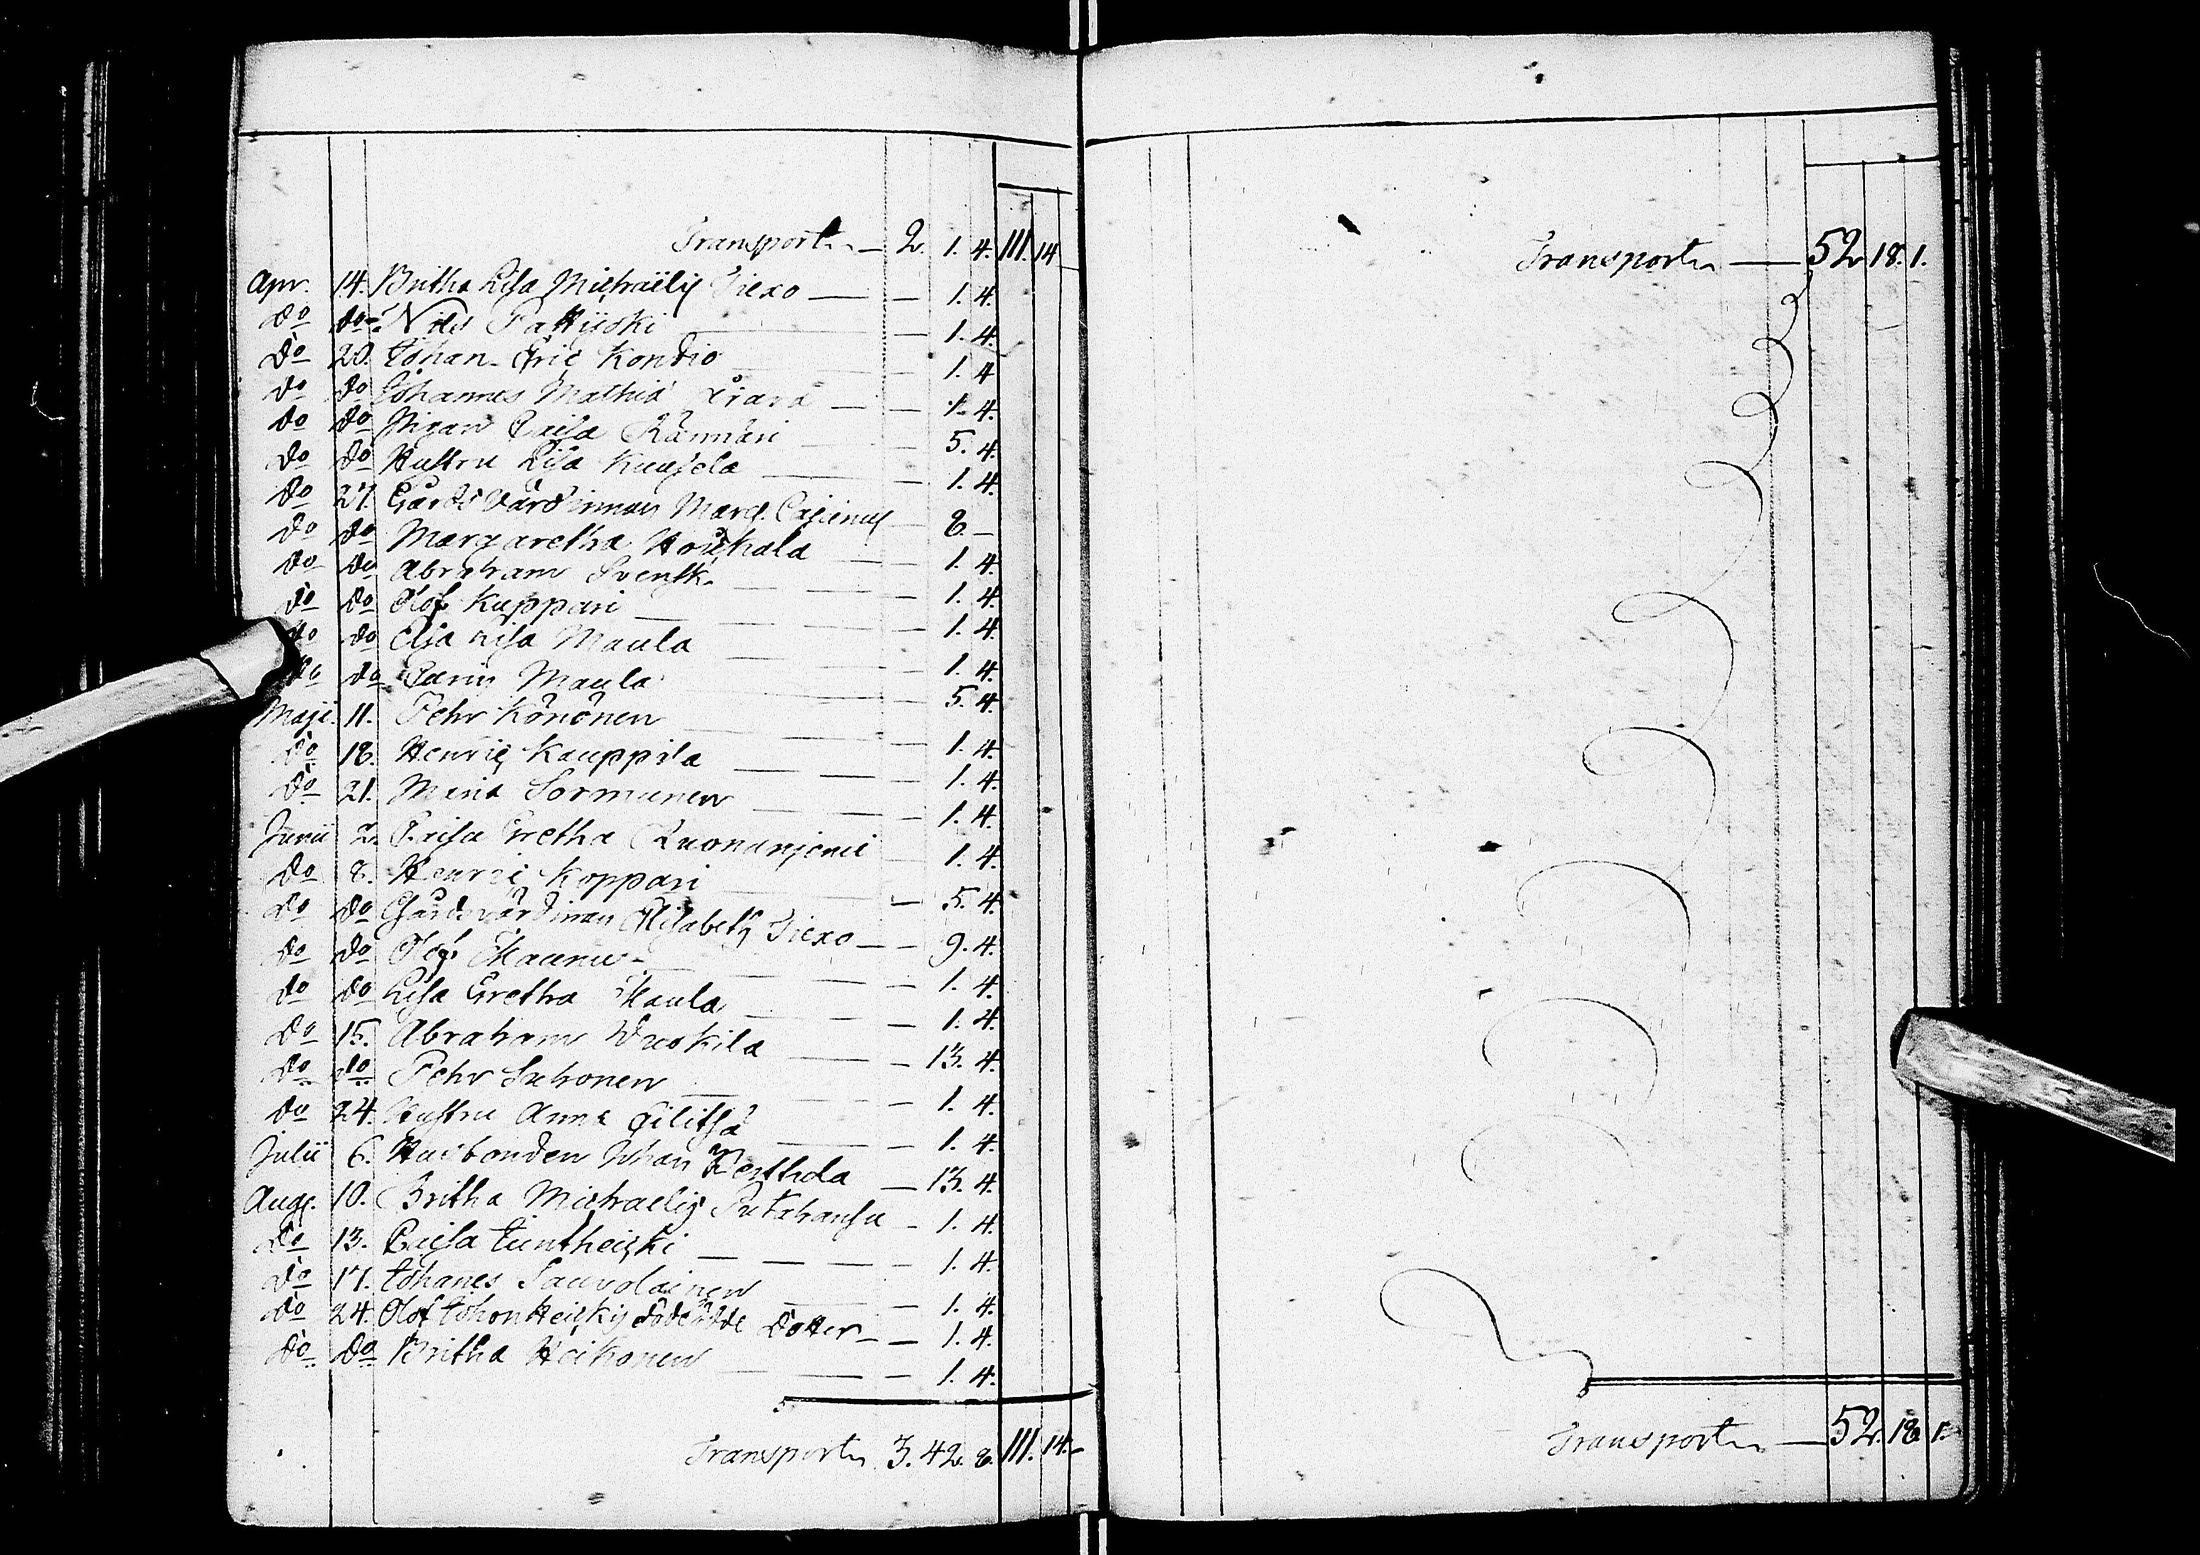 Transport — 2. 1. 4. 111. 14
Apr. 14. Britha Lisa Michaëlis Tiexo — — 1. 4.
do do Nils Pattijoki — 1. 4.
do 20. Johan Eric Kondio — 1. 4
do do Johannes Mathiæ — — 1. 4.
do do Pigan Caisa — 5. 4.
do do Hustru Lisa — 1. 4.
do 27. Gårds Värdinnan Marg. — 8. —
do do Margaretha — 1. 4.
do do Abraham Svensk — 1. 4.
do do Olof Kuppari — 1. 4.
do do Elsa Lisa Maula — 1. 4.
do do Carin Maula — 5. 4.
Maji. 11. Pehr Könönen — 1. 4.
do 18. Henric Kauppila — 1. 4.
do 21. Maria Sormunen — 1. 4.
Junii 2. Caisa Gretha — 1. 4.
do 8. Henric Koppari — 5. 4.
do do Gårdsvärdinan Elisabeth Tiexo — — 9. 4.
do do Olof Maunu — 1. 4.
do do Lisa Gretha Maula — 1. 4.
do 15. Abraham Wuokila — 13. 4.
do do Pehr Suhonen — 1. 4.
do 24. Hustru Anna — 1. 4.
Julii 6. Husbonden Johan — 13. 4.
Aug. 10. Britha Michaelis — 1. 4.
do 13. Caisa — 1. 4.
do 17. Johanes Sauvolainen — 1. 4.
do 24. Olof Johan Dotter — — 1. 4.
do do Britha Heikonen — 1. 4.
Transport 3. 42. 8. 111. 14. -
Transport — 52 18. 1.
Transport — 52. 18. 1.